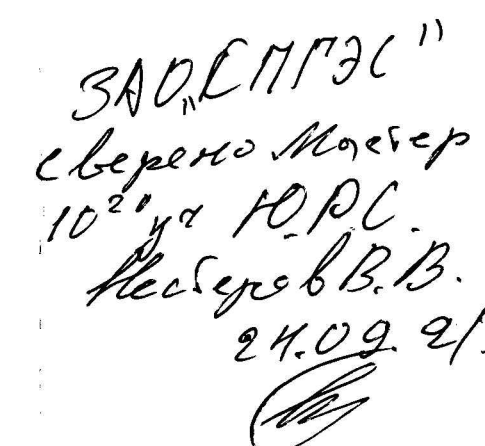 ЗАО „СПГЭС"
сверено Мастер
10²⁰ уч Ю.Р.С.
Нестеров В.В.
24.09.21.